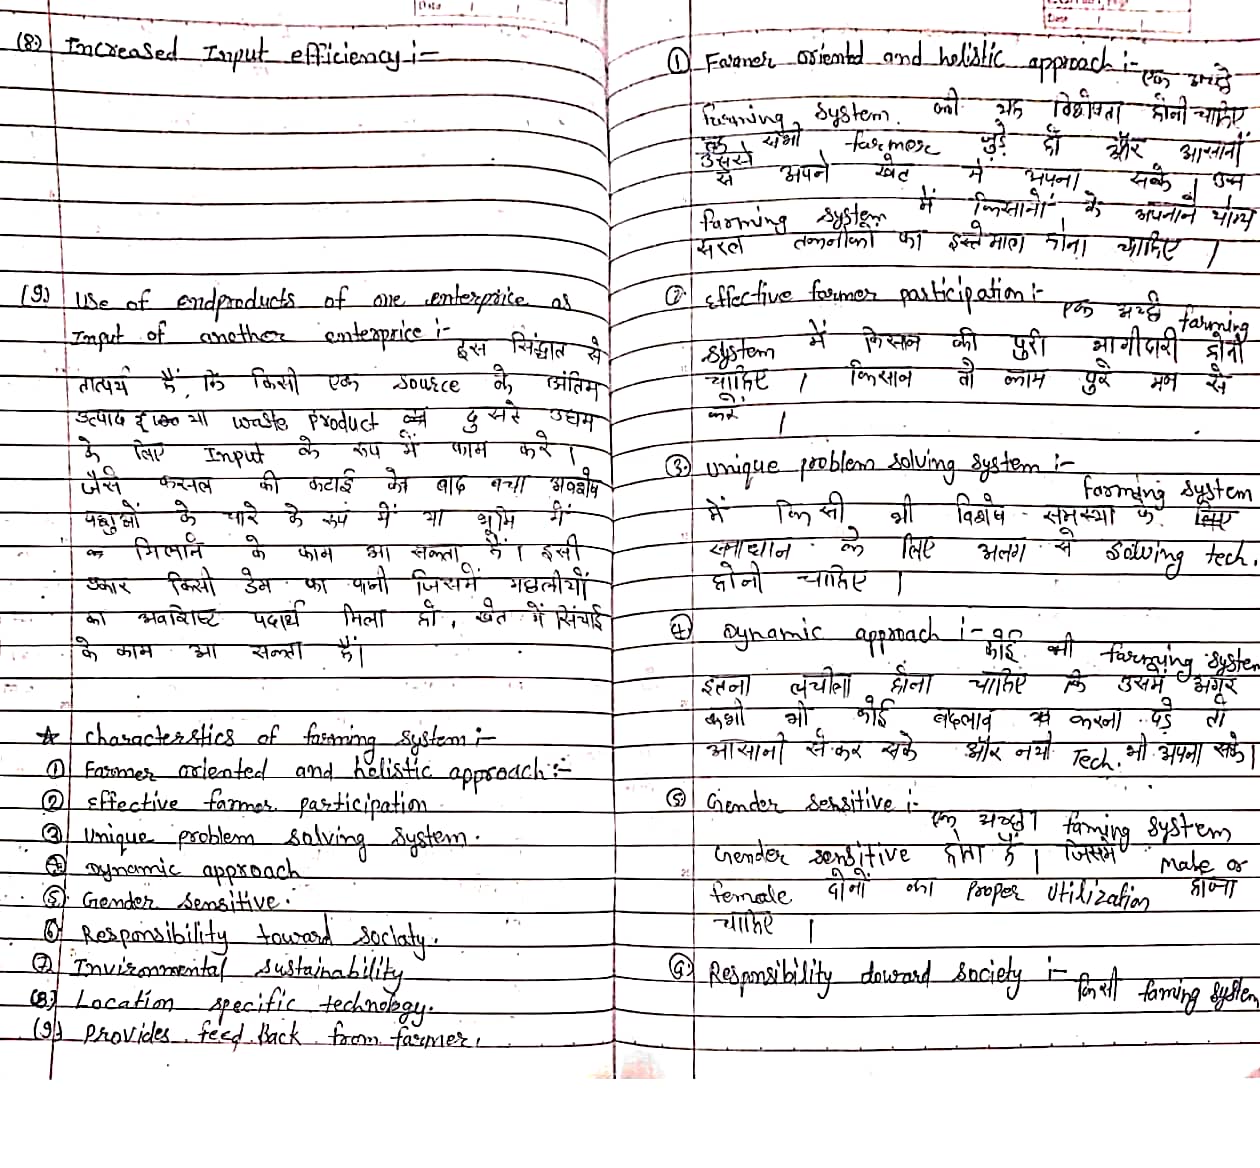 Date
(8) Increased Input efficiency :-
(9) Use of endproducts of one enterprice as
Input of another enterprice :-
इस सिंद्घात से
तात्पर्य हैं, कि किसी एक source के अंतिम
उत्पाद या waste product को दुसरे उधम
के लिए Input के रूप में काम करे।
जैसे फसल की कटाई के बाद बचा अवशेष
पशुओं के चारे के रूप में या भूमि में
मिलाने के काम आ सकता हैं। इसी
प्रकार किसी डेम का पानी जिसमें मछलीयों
का अवशिष्ट पदार्थ मिला हो, खेत में सिंचाई
के काम आ सकता हैं।
★ Characterstics of farming system :-
① Farmer oriented and holistic approach :-
② Effective farmer participation
③ Unique problem solving system.
④ Dynamic approach
⑤ Gender sensitive.
⑥ Responsibility toward sociaty.
⑦ Invironmental sustainability
(8) Location specific technology.
(9) Provides feed back from farmer.
Date
① Farmer oriented and holistic approach :-
एक अच्छे
farming system की यह विशेषता होनी चाहिए
कि सभी farmer जुड़े हों और आसानी
उससे
से अपने खेत में अपना सके। उस
farming system में किसानों के अपनाने योग्य
सरल तकनीकों का इस्तेमाल होना चाहिए।
② Effective farmer participation :-
एक अच्छे farming
system में किसान की पुरी भागीदारी होनी
चाहिए। किसान तो काम पुरे मन से
करें।
③ Unique problem solving system :-
farming system
में किसी भी विशेष समस्या के लिए
समाधान के लिए अलग से solving tech.
होनी चाहिए।
④ Dynamic approach :-
कोई भी farming system
इतना लचीला होना चाहिए कि उसमें अगर
कभी भी कोई बदलाव करना पड़े तो
आसानी से कर सके और नयी Tech. भी अपना सके।
⑤ Gender sensitive :-
एक अच्छा faming system
Gender sensitive होता हैं। जिसमें Male or
female दोनों का proper Utilization होना
चाहिए।
⑥ Responsibility doward society :-
किसी faming system